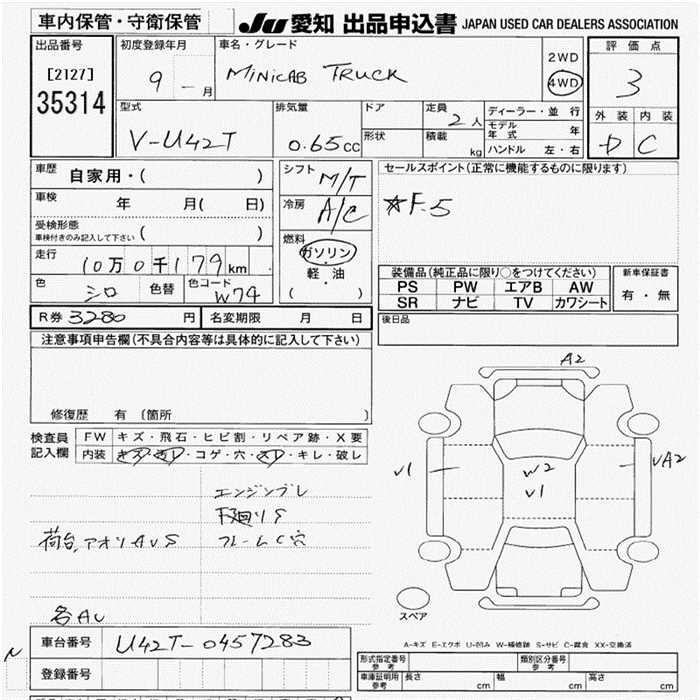 車内保管・守衛保管 JU 愛知 出品申込書 JAPAN USED CAR DEALERS ASSOCIATION
出品番号 初度登録年月 車名・グレード 2WD 評価点
[2127] 9 - 月 MINICAB TRUCK 4WD 3
35314 外装 内装
型式 排気量 ドア 定員 ディーラー・並行 D C
2人 モデル年式 年
V-U42T 0.65CC 形状 積載 kg ハンドル 左・右
車歴 自家用・( ) シフト M/T セールスポイント(正常に機能するものに限ります)
車検 年 月( 日) 冷房 A/C ☆F.5
受検形態
車検付きのみ記入して下さい ( ) 燃料
走行 10万0千179km ガソリン・軽油 装備品(純正品に限り○をつけてください) 新車保証書
色 シロ 色替 色コード W74 ( ) PS PW エアB AW 有・無
SR ナビ TV カワシート
R券 3280 円 名変期限 月 日 後日品
注意事項申告欄(不具合内容等は具体的に記入して下さい)
修復歴 有 〔箇所 〕
検査員記入欄 FW キズ・飛石・ヒビ割・リペア跡・X要
内装 キズ・ヨゴレ・コゲ・穴・スレ・キレ・破レ
A2
V1 W2 VA2
V1
エンジンブレ
下廻りS
荷台、アオリAUS フレームC穴
各AU スペア
A-キズ E-エクボ U-凹み W-補修跡 S-サビ C-腐食 XX-交換済
車台番号 U42T-0457283
登録番号
形式指定番号 参考 類別区分番号 参考
車庫証明用 参考 長さ cm 幅 cm 高さ cm